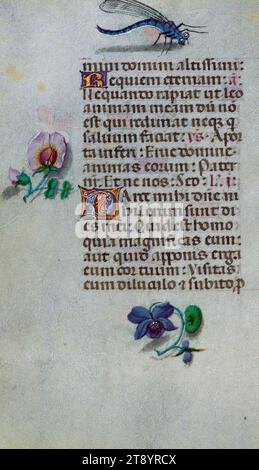 mini domini altissimi:
Requiem eternam: a
Nequando rapiat ut leo
animam meam dū nō
est qui redimat neq
saluum faciat: vs. A por
ta inferi: Erue domine
animas eorum: Pater
nr: Et ne nos: Lc̄o: i:
Parce mihi dñe ni
hil enim sunt di
es mei: Quid est homo
quia magnificas eum:
aut quid apponis erga
eum cor tuum: Visitas
eum diluculo et subito p
alamy
alamy
Image ID: 2T8YRCX
www.alamy.com